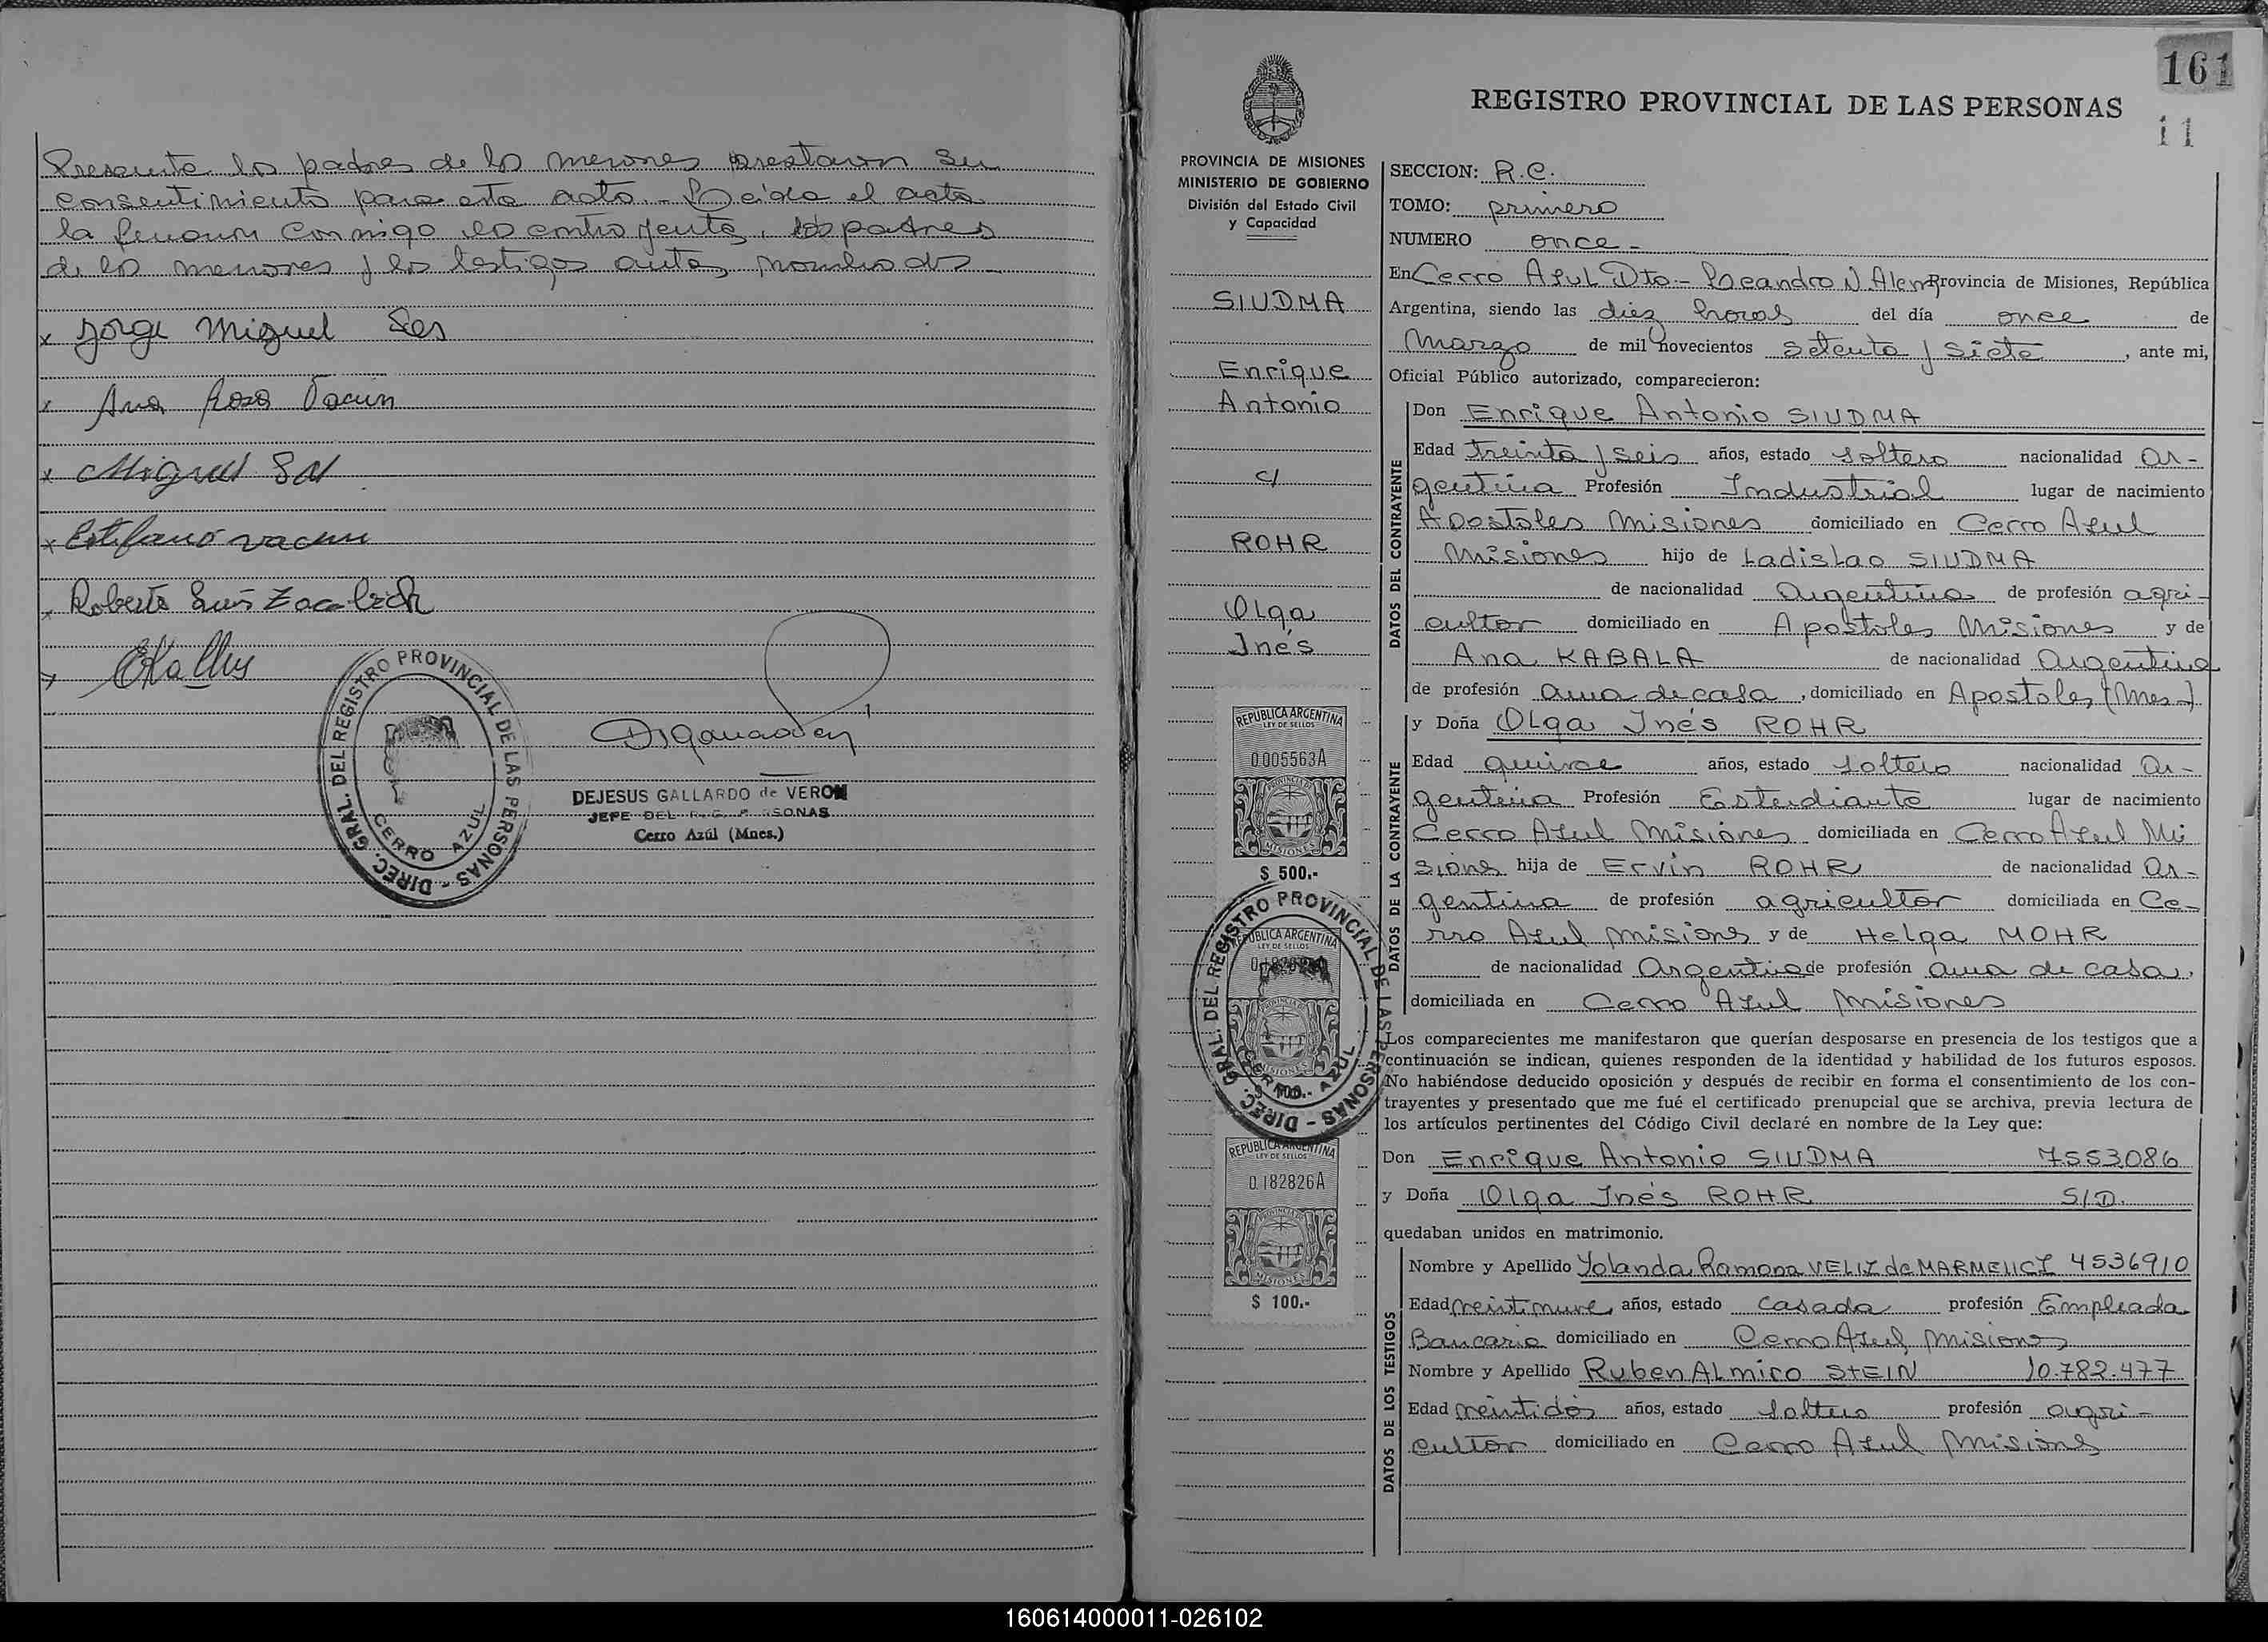 Presente los padres de los menores prestaron su
consentimiento para este acto.- Leida el acta
la firmaron conmigo los contrayentes, los padres
de los menores y los testigos antes nombrados-
x Jorge Miguel
x Ana Rosa
x Miguel
x
x Roberto Luis
DIREC. GRAL. DEL REGISTRO PROVINCIAL DE LAS PERSONAS -
CERRO AZUL
DEJESUS GALLARDO de VERON
JEFE DEL R. G. P. RSONAS
Cerro Azúl (Mnes.)
161
REGISTRO PROVINCIAL DE LAS PERSONAS
11
PROVINCIA DE MISIONES
MINISTERIO DE GOBIERNO
División del Estado Civil
y Capacidad
SIUDMA
Enrique
Antonio
c/
ROHR
Olga
Inés
REPUBLICA ARGENTINA
LEY DE SELLOS
0.005563A
PROVINCIA DE
MISIONES
$ 500.-
DIREC. GRAL. DEL REGISTRO PROVINCIAL DE LAS PERSONAS -
CERRO AZUL
REPUBLICA ARGENTINA
LEY DE SELLOS
MISIONES
$ 100.-
REPUBLICA ARGENTINA
LEY DE SELLOS
0.182826A
MISIONES
$ 100.-
SECCION: R.C.
TOMO: primero
NUMERO once-
En Cerro Azul Dto.- Leandro N. Alem Provincia de Misiones, República
Argentina, siendo las diez horas del día once de
Marzo de mil novecientos setenta y siete, ante mi,
Oficial Público autorizado, comparecieron:
DATOS DEL CONTRAYENTE
Don Enrique Antonio SIUDMA
Edad treinta y seis años, estado soltero nacionalidad ar-
gentina Profesión Industrial lugar de nacimiento
Apostoles Misiones domiciliado en Cerro Azul
Misiones hijo de Ladislao SIUDMA
de nacionalidad Argentina de profesión agri-
cultor domiciliado en Apostoles Misiones y de
Ana KABALA de nacionalidad Argentina
de profesión ama de casa, domiciliado en Apostoles (Mnes-)
DATOS DE LA CONTRAYENTE
y Doña Olga Inés ROHR
Edad quince años, estado soltera nacionalidad Ar-
gentina Profesión Estudiante lugar de nacimiento
Cerro Azul Misiones domiciliada en Cerro Azul Mi
siones hija de Ervin ROHR de nacionalidad Ar-
gentina de profesión agricultor domiciliada en Ce-
rro Azul Misiones y de Helga MOHR
de nacionalidad Argentina de profesión ama de casa,
domiciliada en Cerro Azul Misiones
Los comparecientes me manifestaron que querían desposarse en presencia de los testigos que a
continuación se indican, quienes responden de la identidad y habilidad de los futuros esposos.
No habiéndose deducido oposición y después de recibir en forma el consentimiento de los con-
trayentes y presentado que me fué el certificado prenupcial que se archiva, previa lectura de
los artículos pertinentes del Código Civil declaré en nombre de la Ley que:
Don Enrique Antonio SIUDMA 7553086
y Doña Olga Inés ROHR S/D.
quedaban unidos en matrimonio.
DATOS DE LOS TESTIGOS
Nombre y Apellido Yolanda Ramona VELIZ de 4536910
Edad veintinueve años, estado casada profesión Empleada
Bancaria domiciliado en Cerro Azul Misiones
Nombre y Apellido Ruben ALmiro STEIN 10.782.477
Edad veintidós años, estado soltero profesión agri-
cultor domiciliado en Cerro Azul Misiones
160614000011-026102